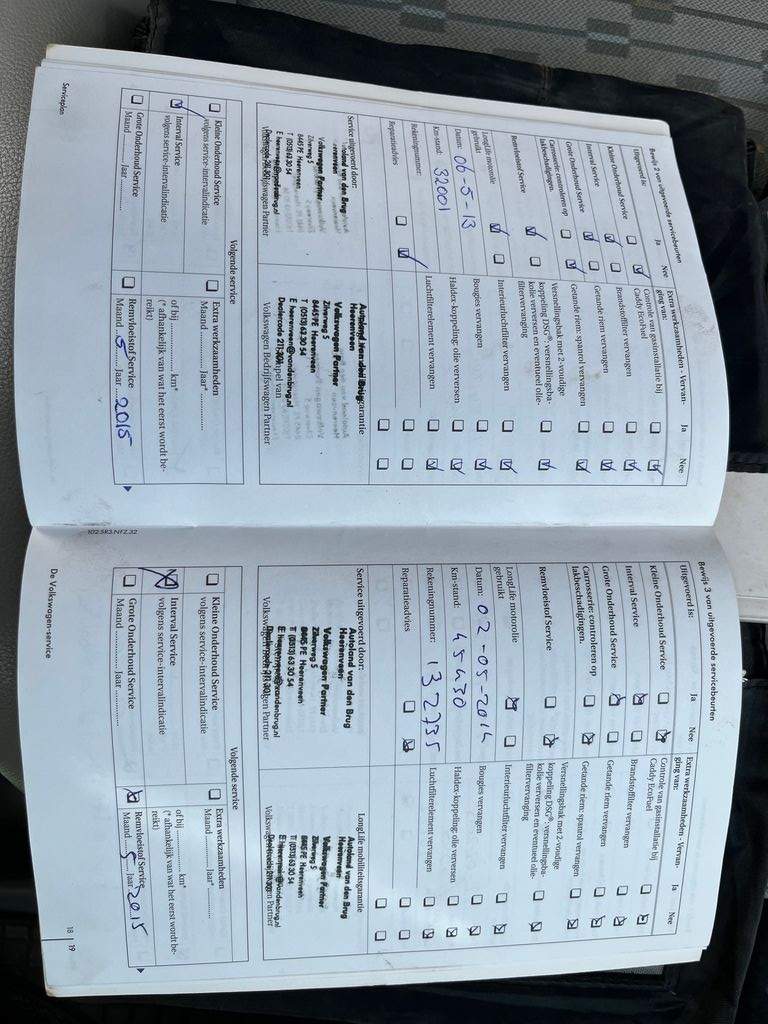 Bewijs 2 van uitgevoerde servicebeurten
Uitgevoerd is: Ja Nee
Kleine Onderhoud Service
Interval Service
Grote Onderhoud Service
Carrosserie: controleren op
lakbeschadigingen.
Remvloeistof Service
LongLife motorolie
gebruikt
Datum: 06-5-13
Km-stand: 32001
Rekeningnummer:
Reparatieadvies
Extra werkzaamheden - Vervan-
ging van: Ja Nee
Controle van gasinstallatie bij
Caddy EcoFuel
Brandstoffilter vervangen
Getande riem vervangen
Getande riem: spanrol vervangen
Versnellingsbak met 2-voudige
koppeling DSG®: versnellingsba-
kolie verversen en eventueel olie-
filtervervanging
Interieurluchtfilter vervangen
Bougies vervangen
Haldex-koppeling: olie verversen
Luchtfilterelement vervangen
Service uitgevoerd door:
Autoland van den Brug
Heerenveen
Volkswagen Partner
Zilverweg 5
8445 PE Heerenveen
T (0513) 63 30 54
Volkswagen Partner
Autoland van den Brug
Heerenveen
Volkswagen Partner
Zilverweg 5
8445 PE Heerenveen
T (0513) 63 30 54
E heerenveen@vandenbrug.nl
Dealercode 211.300
Volkswagen Bedrijfswagen Partner
Volgende service
Kleine Onderhoud Service
volgens service-intervalindicatie
Interval Service
volgens service-intervalindicatie
Grote Onderhoud Service
Maand ............ Jaar ............
Extra werkzaamheden
Maand ............ Jaar* ............
of bij ............ km*
(* afhankelijk van wat het eerst wordt be-
reikt)
Remvloeistof Service
Maand 5 Jaar 2015
Serviceplan
102.5R3.NFZ.32
Bewijs 3 van uitgevoerde servicebeurten
Uitgevoerd is: Ja Nee
Kleine Onderhoud Service
Interval Service
Grote Onderhoud Service
Carrosserie: controleren op
lakbeschadigingen.
Remvloeistof Service
LongLife motorolie
gebruikt
Datum: 02-05-2014
Km-stand: 45430
Rekeningnummer: 132735
Reparatieadvies
Extra werkzaamheden - Vervan-
ging van: Ja Nee
Controle van gasinstallatie bij
Caddy EcoFuel
Brandstoffilter vervangen
Getande riem vervangen
Getande riem: spanrol vervangen
Versnellingsbak met 2-voudige
koppeling DSG®: versnellingsba-
kolie verversen en eventueel olie-
filtervervanging
Interieurluchtfilter vervangen
Bougies vervangen
Haldex-koppeling: olie verversen
Luchtfilterelement vervangen
Service uitgevoerd door:
Autoland van den Brug
Heerenveen
Volkswagen Partner
Zilverweg 5
8445 PE Heerenveen
T (0513) 63 30 54
E heerenveen@vandenbrug.nl
Dealercode 211.300
LongLife mobiliteitsgarantie
Autoland van den Brug
Heerenveen
Volkswagen Partner
Zilverweg 5
8445 PE Heerenveen
T (0513) 63 30 54
E heerenveen@vandenbrug.nl
Dealercode 211.300
Volgende service
Kleine Onderhoud Service
volgens service-intervalindicatie
Interval Service
volgens service-intervalindicatie
Grote Onderhoud Service
Maand ............ Jaar ............
Extra werkzaamheden
Maand ............ Jaar* ............
of bij ............ km*
(* afhankelijk van wat het eerst wordt be-
reikt)
Remvloeistof Service
Maand 5 Jaar 2015
De Volkswagen-service
18 | 19